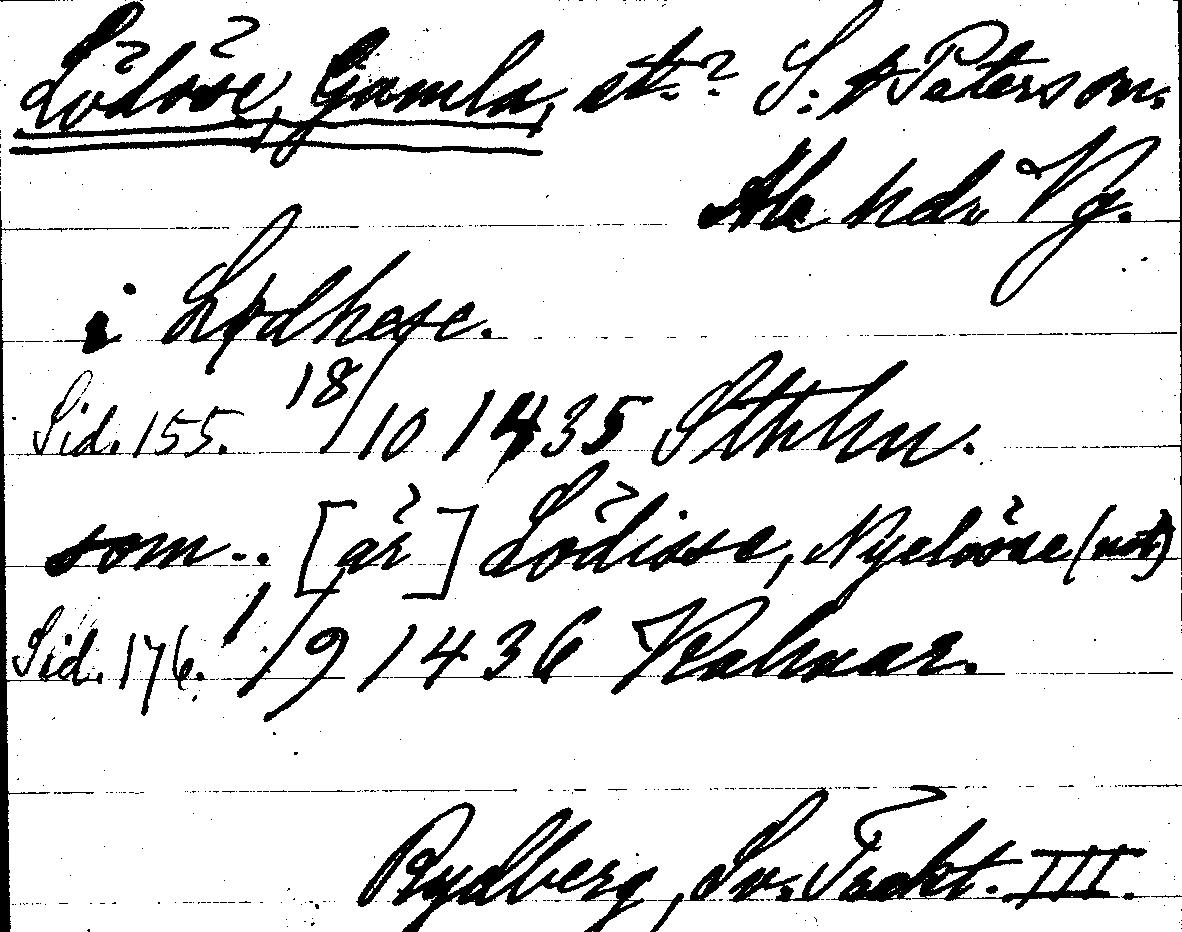 Lödöse, Gamla, st.? S:t Peters sn.
Ale hd. Vg.
i Lødhese.
Sid. 155. 18/10 1435 Sthlm.
som.. [är] Lödisse, Nyelööse (not)
Sid. 176. 1/9 1436 Kalmar.
Rydberg, Sv. Trakt. III.